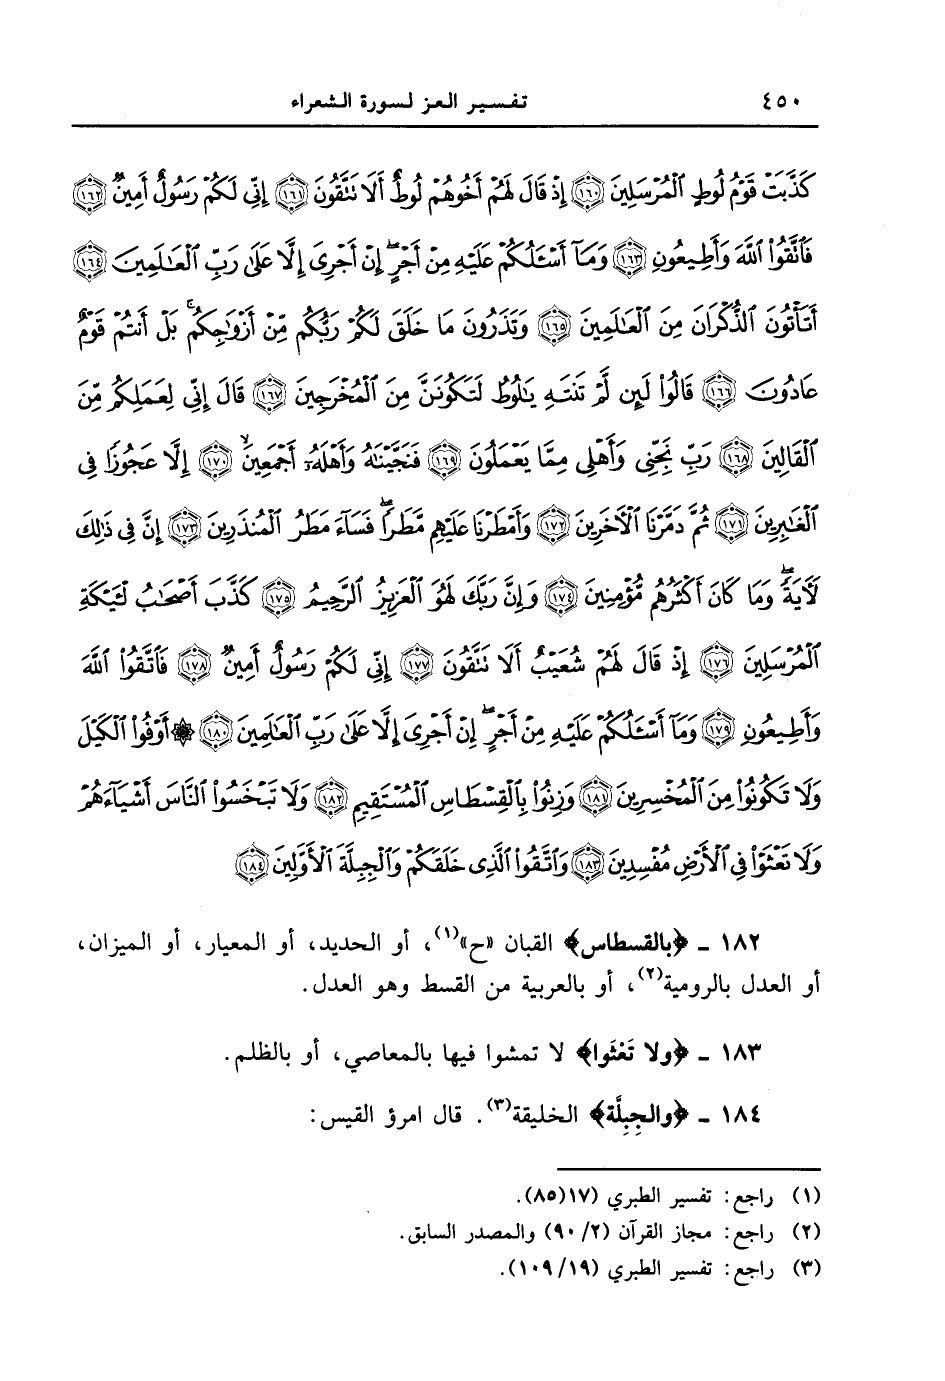 ٤٥٠ تفسير العز لسورة الشعراء
كَذَّبَتْ قَوْمُ لُوطٍ ٱلْمُرْسَلِينَ ١٦٠ إِذْ قَالَ لَهُمْ أَخُوهُمْ لُوطٌ أَلَا تَتَّقُونَ ١٦١ إِنِّي لَكُمْ رَسُولٌ أَمِينٌ ١٦٢
فَٱتَّقُوا۟ ٱللَّهَ وَأَطِيعُونِ ١٦٣ وَمَآ أَسْـَٔلُكُمْ عَلَيْهِ مِنْ أَجْرٍ ۖ إِنْ أَجْرِىَ إِلَّا عَلَىٰ رَبِّ ٱلْعَـٰلَمِينَ ١٦٤
أَتَأْتُونَ ٱلذُّكْرَانَ مِنَ ٱلْعَـٰلَمِينَ ١٦٥ وَتَذَرُونَ مَا خَلَقَ لَكُمْ رَبُّكُم مِّنْ أَزْوَٰجِكُم ۚ بَلْ أَنتُمْ قَوْمٌ
عَادُونَ ١٦٦ قَالُوا۟ لَئِن لَّمْ تَنتَهِ يَـٰلُوطُ لَتَكُونَنَّ مِنَ ٱلْمُخْرَجِينَ ١٦٧ قَالَ إِنِّى لِعَمَلِكُم مِّنَ
ٱلْقَالِينَ ١٦٨ رَبِّ نَجِّنِى وَأَهْلِى مِمَّا يَعْمَلُونَ ١٦٩ فَنَجَّيْنَـٰهُ وَأَهْلَهُۥٓ أَجْمَعِينَ ١٧٠ إِلَّا عَجُوزًا فِى
ٱلْغَـٰبِرِينَ ١٧١ ثُمَّ دَمَّرْنَا ٱلْـَٔاخَرِينَ ١٧٢ وَأَمْطَرْنَا عَلَيْهِم مَّطَرًا ۖ فَسَآءَ مَطَرُ ٱلْمُنذَرِينَ ١٧٣ إِنَّ فِى ذَٰلِكَ
لَـَٔايَةً ۖ وَمَا كَانَ أَكْثَرُهُم مُّؤْمِنِينَ ١٧٤ وَإِنَّ رَبَّكَ لَهُوَ ٱلْعَزِيزُ ٱلرَّحِيمُ ١٧٥ كَذَّبَ أَصْحَـٰبُ لْـَٔيْكَةِ
ٱلْمُرْسَلِينَ ١٧٦ إِذْ قَالَ لَهُمْ شُعَيْبٌ أَلَا تَتَّقُونَ ١٧٧ إِنِّى لَكُمْ رَسُولٌ أَمِينٌ ١٧٨ فَٱتَّقُوا۟ ٱللَّهَ
وَأَطِيعُونِ ١٧٩ وَمَآ أَسْـَٔلُكُمْ عَلَيْهِ مِنْ أَجْرٍ ۖ إِنْ أَجْرِىَ إِلَّا عَلَىٰ رَبِّ ٱلْعَـٰلَمِينَ ١٨٠ ۞ أَوْفُوا۟ ٱلْكَيْلَ
وَلَا تَكُونُوا۟ مِنَ ٱلْمُخْسِرِينَ ١٨١ وَزِنُوا۟ بِٱلْقِسْطَاسِ ٱلْمُسْتَقِيمِ ١٨٢ وَلَا تَبْخَسُوا۟ ٱلنَّاسَ أَشْيَآءَهُمْ
وَلَا تَعْثَوْا۟ فِى ٱلْأَرْضِ مُفْسِدِينَ ١٨٣ وَٱتَّقُوا۟ ٱلَّذِى خَلَقَكُمْ وَٱلْجِبِلَّةَ ٱلْأَوَّلِينَ ١٨٤
١٨٢ ـ ﴿بالقسطاس﴾ القبان «ح»(١)، أو الحديد، أو المعيار، أو الميزان،
أو العدل بالرومية(٢)، أو بالعربية من القسط وهو العدل.
١٨٣ ـ ﴿ولا تَعْثَوا﴾ لا تمشوا فيها بالمعاصي، أو بالظلم.
١٨٤ ـ ﴿والجِبِلَّة﴾ الخليقة(٣). قال امرؤ القيس:
(١) راجع: تفسير الطبري (١٧/٨٥).
(٢) راجع: مجاز القرآن (٢/ ٩٠) والمصدر السابق.
(٣) راجع: تفسير الطبري (١٩/ ١٠٩).